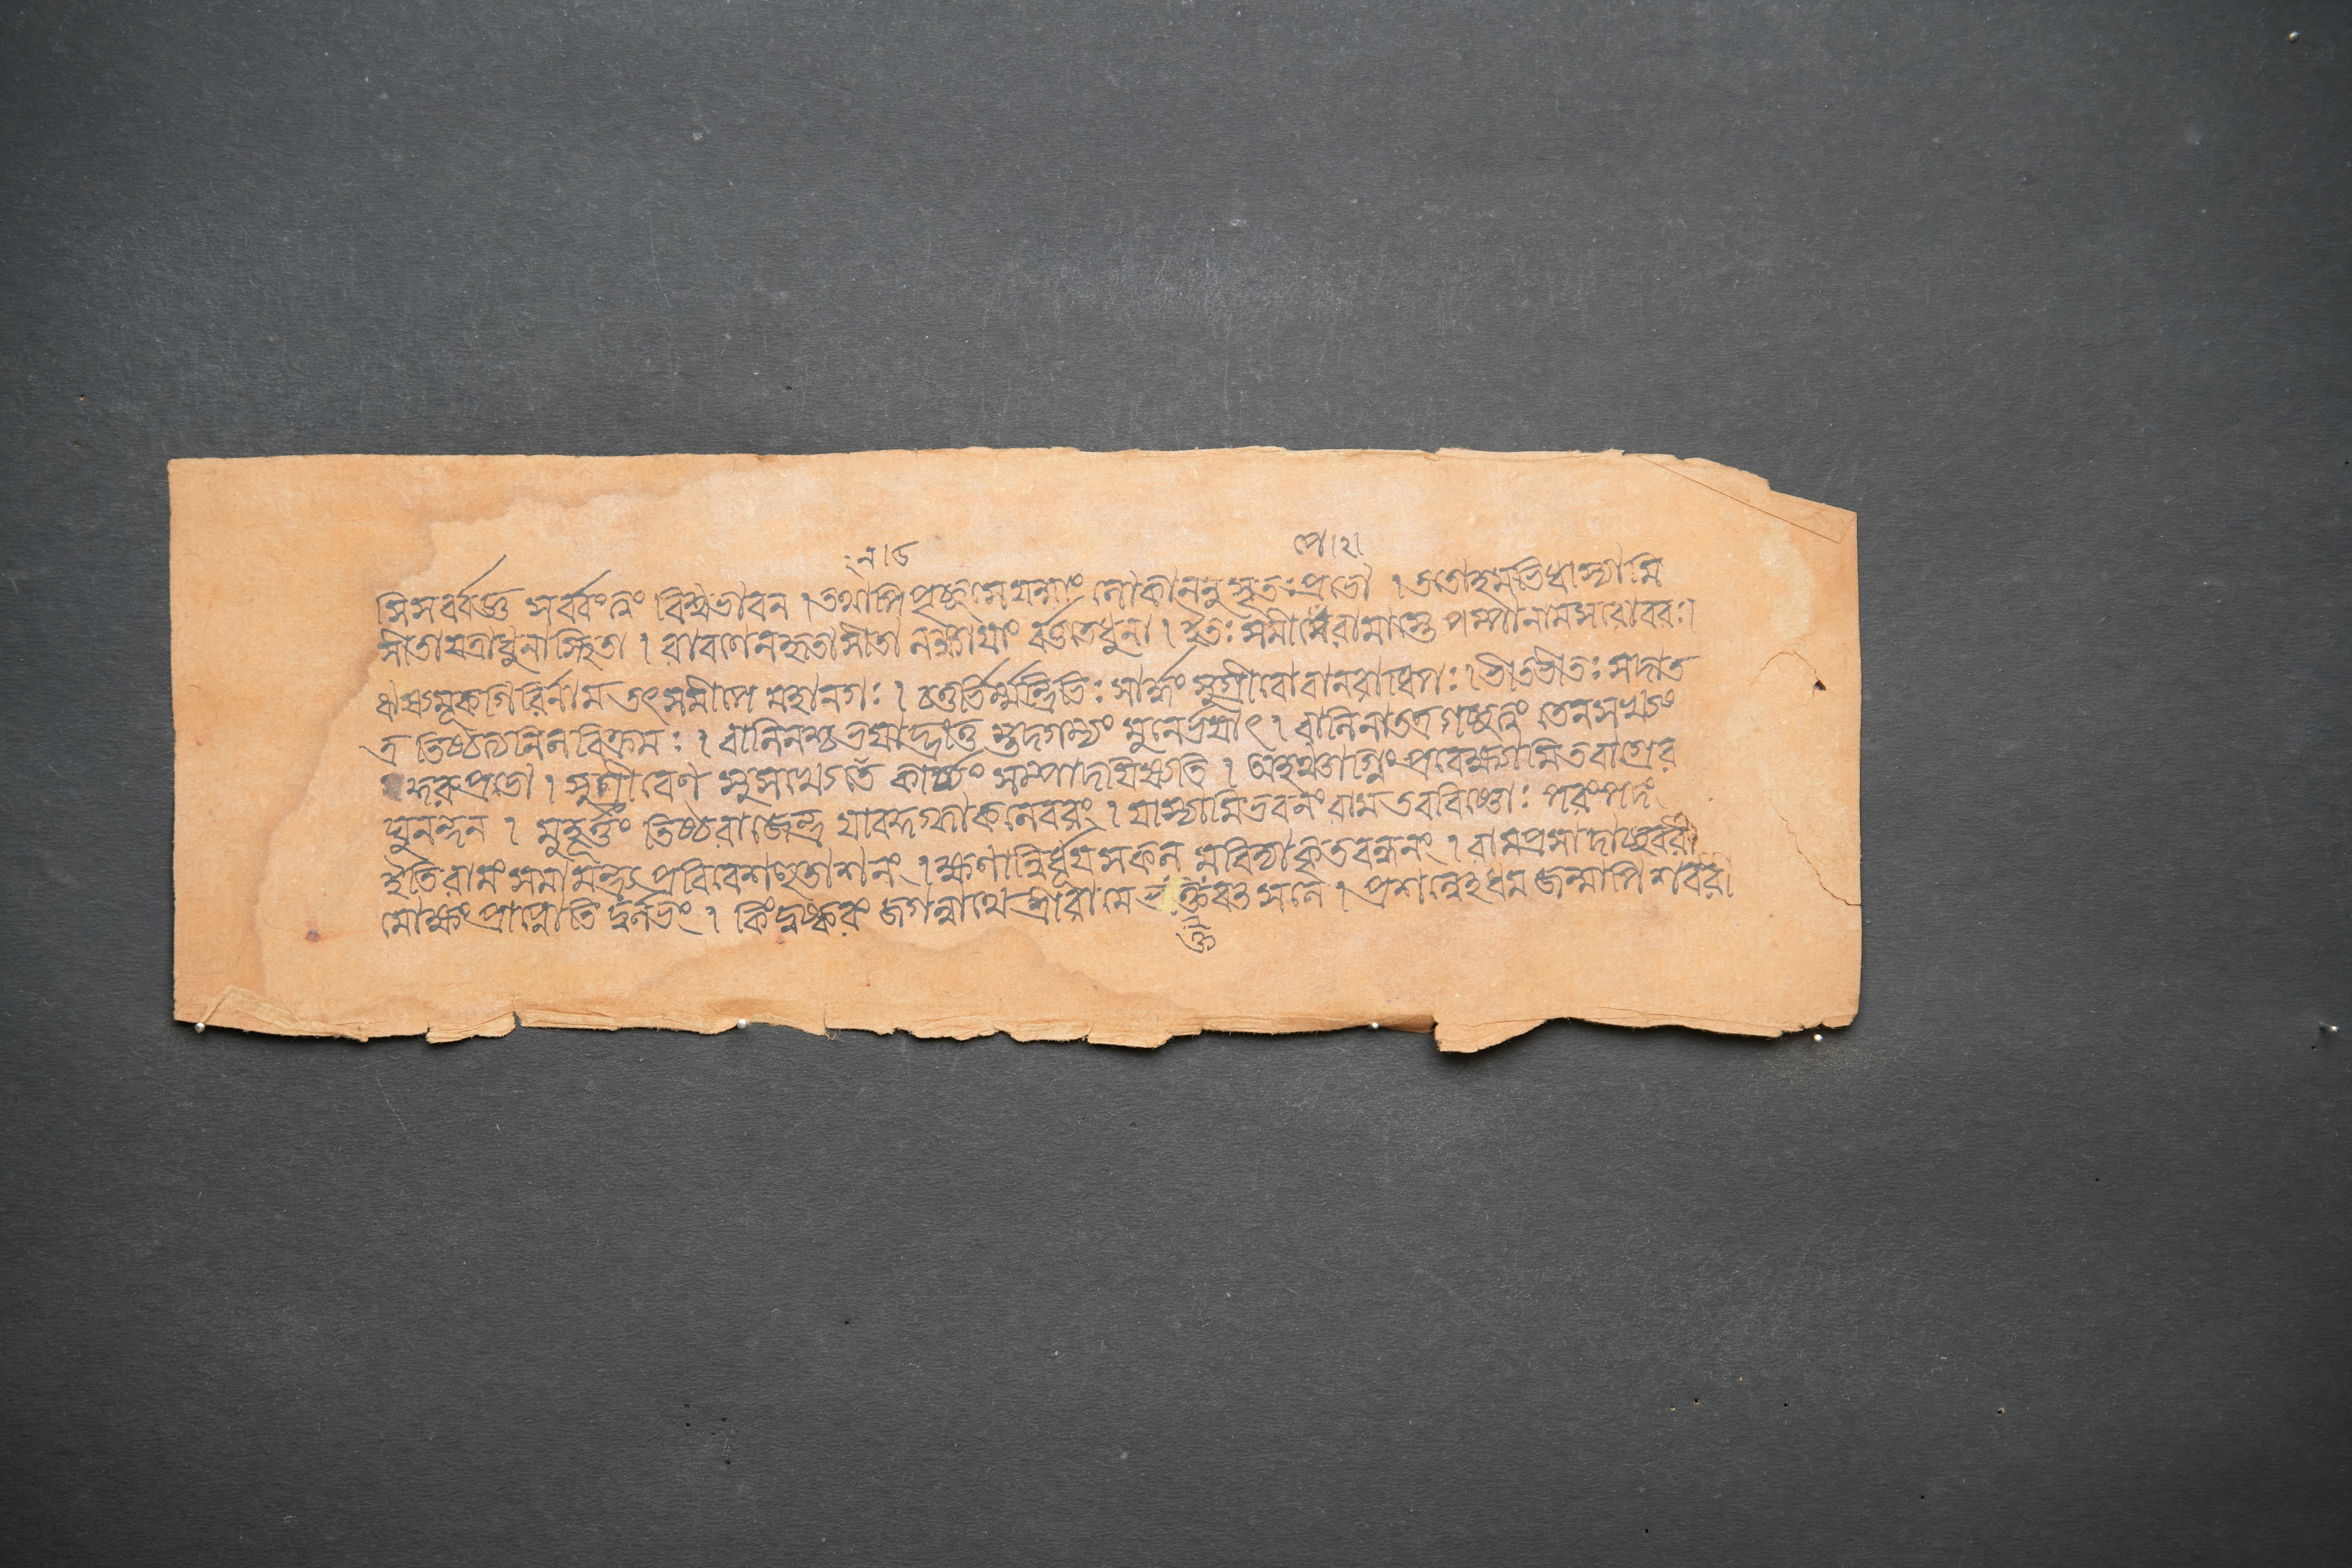 ন । ৫ পে । ২ ।
সিসর্ব্বজ্ঞ সর্ব্বংত্বং বিশ্বভাবন । তথাপিপৃচ্ছসেযন্মাং লোকাননুসৃতঃপ্রভো । ততোহমভিধাস্যামি
সীতাযত্রাধুনাস্থিতা । রাবণেনহৃতাসীতা লঙ্কাযাং বর্ত্ততেধুনা । ইতঃ সমীপেরামাস্তে পম্পানামসরোবরঃ ।
ঋষ্যমূকগিরির্নাম তৎসমীপে মহানগঃ । চতুর্ভির্ম্মন্ত্রিভিঃ সার্দ্ধং সুগ্রীবোবানরাধিপঃ । ভীতভীতঃ সদাত
ত্র তিষ্ঠত্যতুলবিক্রমঃ । বালিনশ্চভযাদ্ভ্রাতু স্তদগম্যং মুনের্ভযাৎ । বালিনাতত্রগচ্ছত্বং তেনসখ্যং
কুরুপ্রভো । সুগ্রীবেণ সুসখ্যেতে কার্য্যং সম্পাদযিষ্যতি । অহমগ্নিংপ্রবেক্ষ্যামিতবাগ্রের
ঘুনন্দন । মুহূর্ত্তং তিষ্ঠরাজেন্দ্র যাবদ্দগ্ধাকলেবরং । যাস্যামিভবনংরাম তববিষ্ণোঃ পরংপদং
ইতিরামং সমামন্ত্র্য প্রবিবেশহুতাশনং । ক্ষণান্নির্ধূযসকল মবিদ্যাকৃতবন্ধনং । রামপ্রসাদাচ্ছবরী
মোক্ষং প্রাপ্নোতি দুর্লভং । কিংদুষ্করং জগন্নাথে শ্রীরামে ভক্তবৎসলে । প্রশন্নেহধমজন্মাপি শবরী